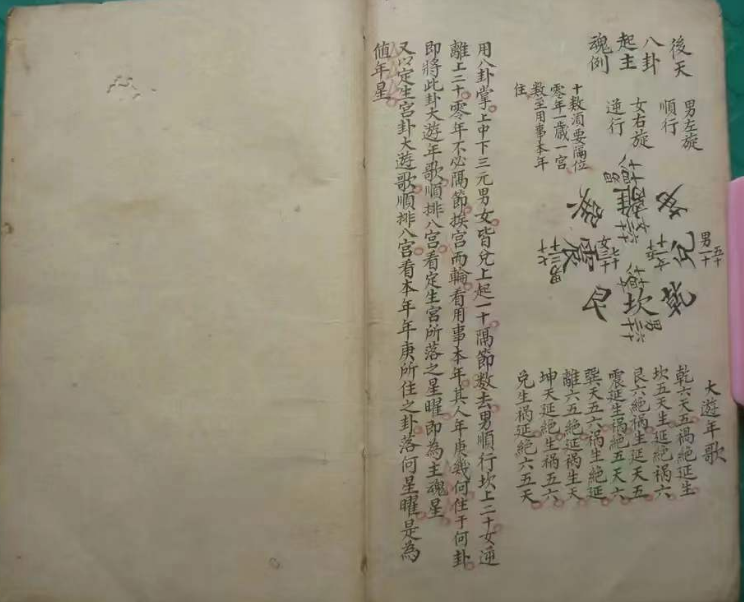 後天
八卦
起主
魂例
男左旋
順行
女右旋
逆行
十數須要隔位
零年一歲一宮
數至用事本年
住
巽 離 坤
震 兌
艮 坎 乾
大遊年歌
乾六天五禍絕延生
坎五天生延絕禍六
艮六絕禍生延天五
震延生禍絕五天六
巽天五六禍生絕延
離六五絕延禍生天
坤天延絕生禍五六
兌生禍延絕六五天
用八卦掌上中下三元男女皆兌上起一十隔節數去男順行坎上二十女逆
離上二十零年不必隔節挨宮而輪看用事本年其人年庚幾何住于何卦
即將此卦大遊年歌順排八宮看定生宮所落之星曜即為主魂星
又以定生宮卦大遊歌順排八宮看本年年庚所住之卦落何星曜是為
值年星